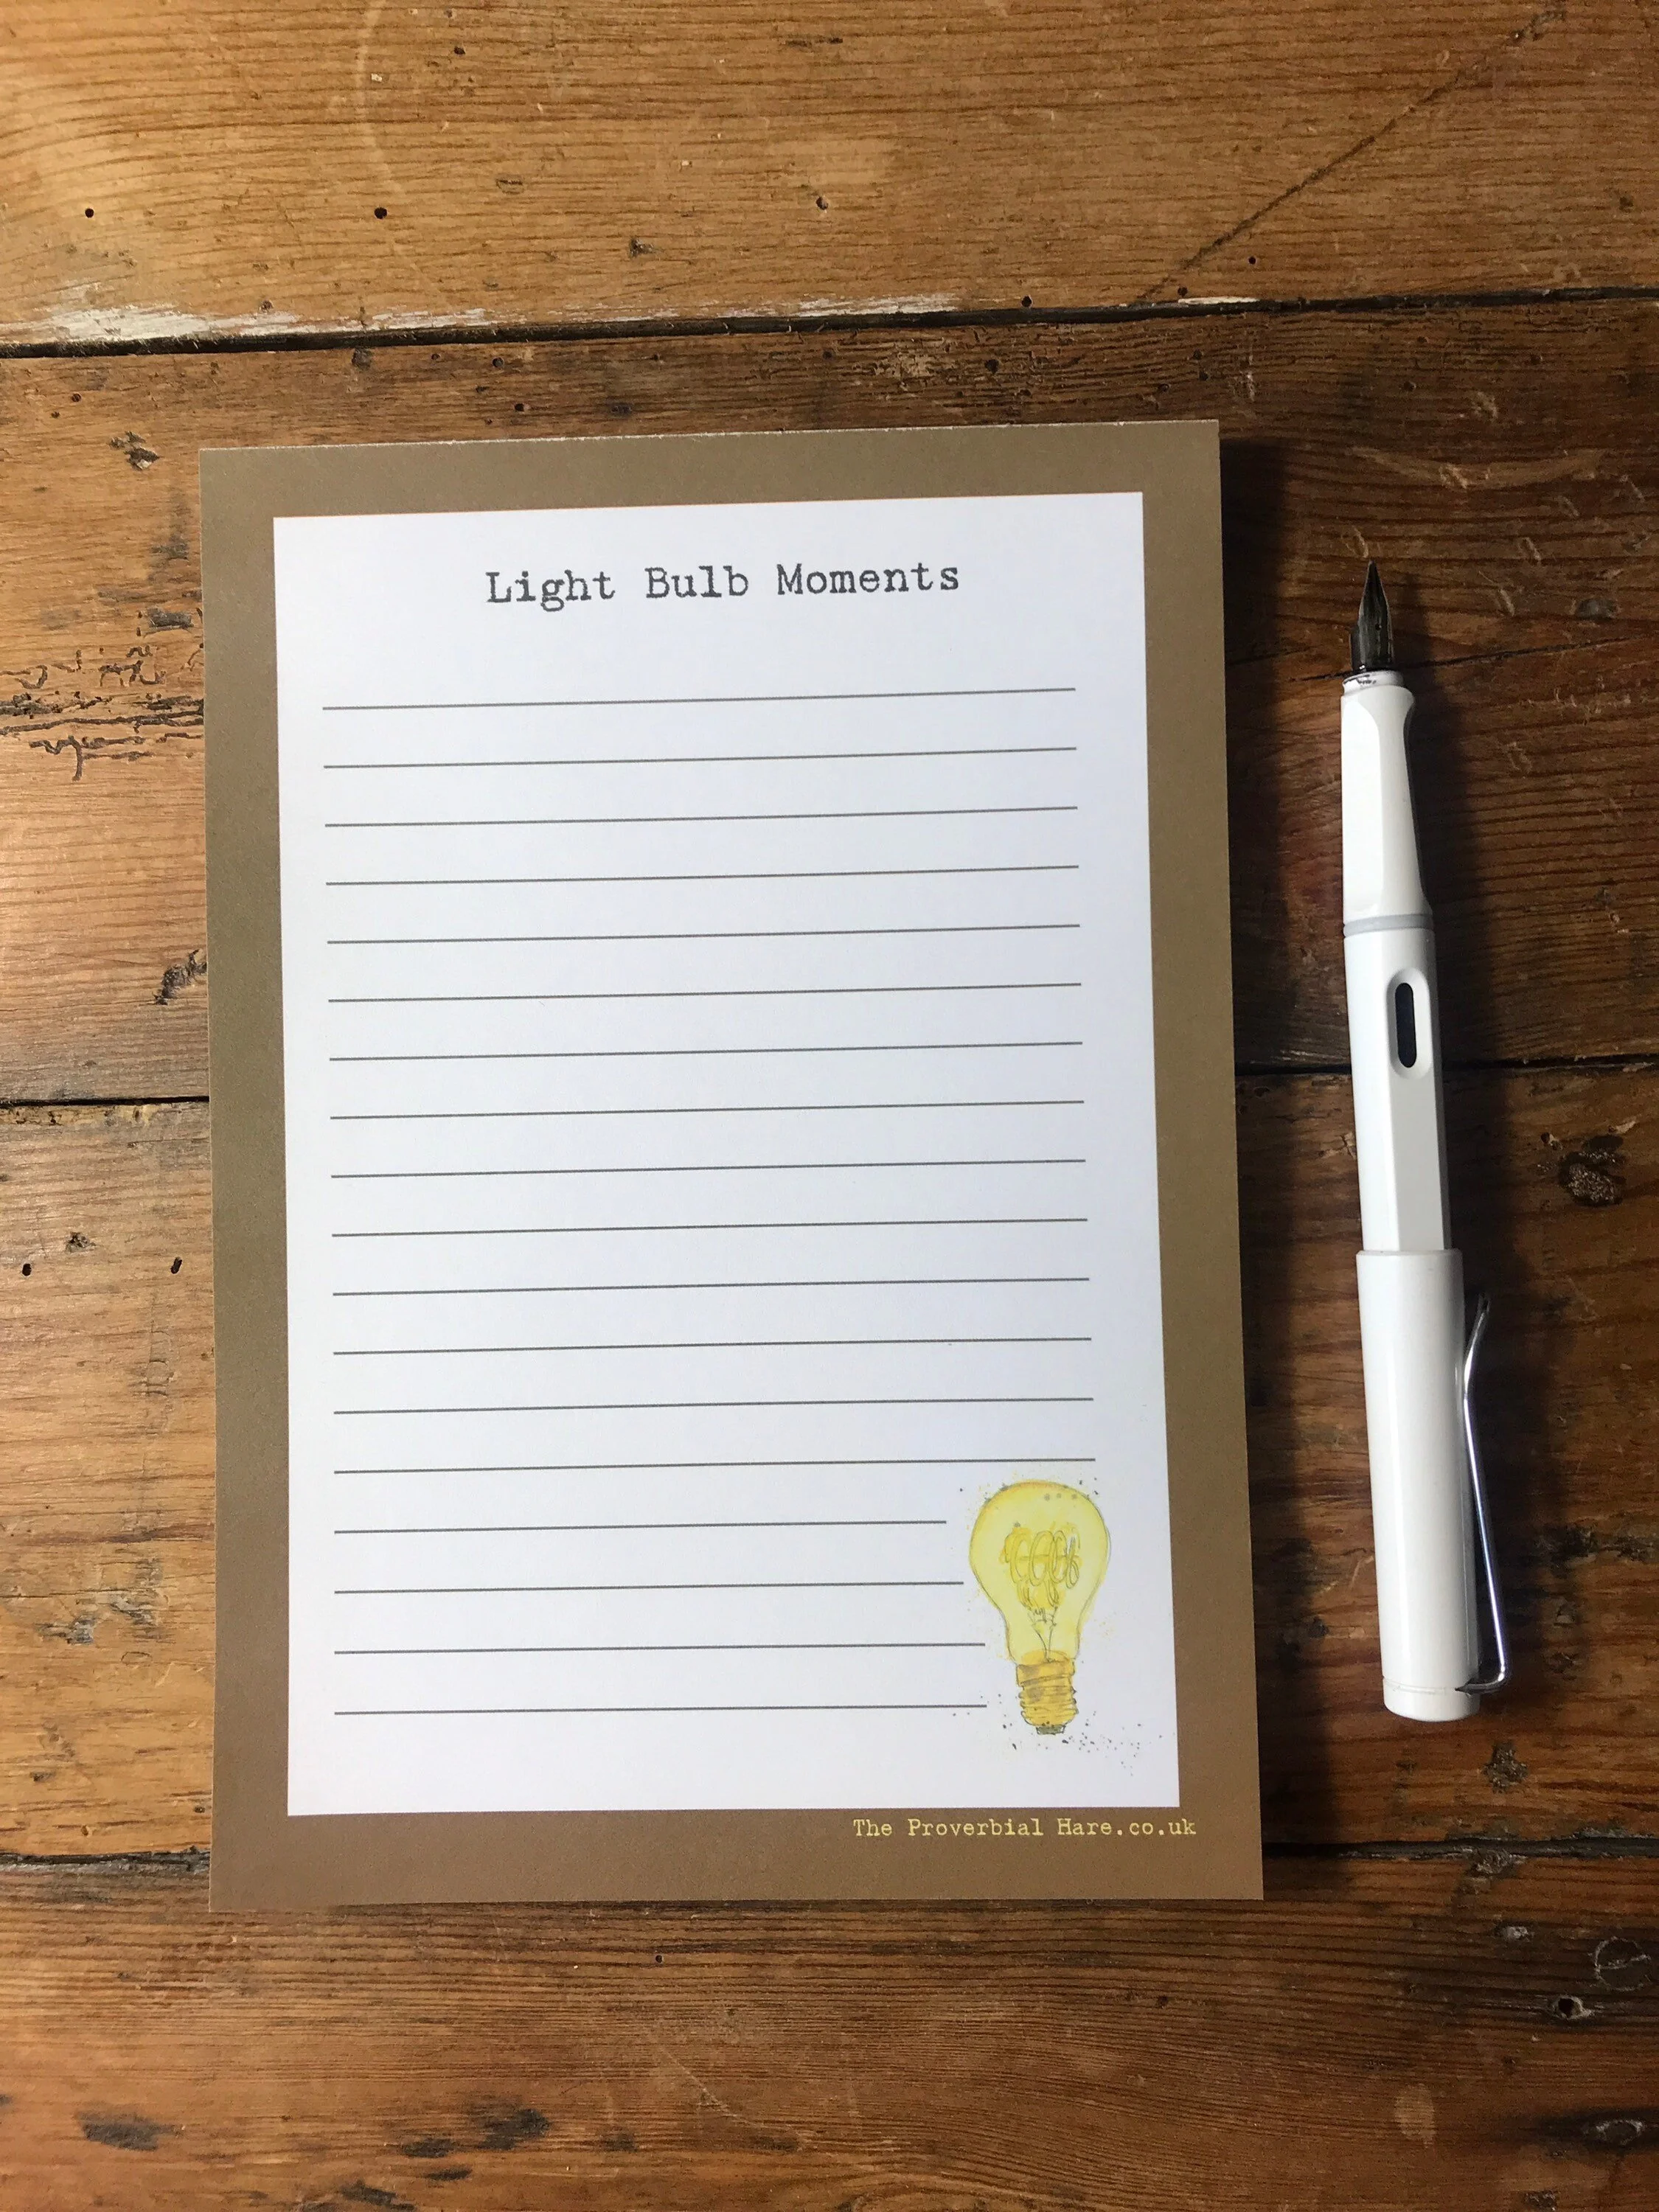 Light Bulb Moments
The Proverbial Hare.co.uk